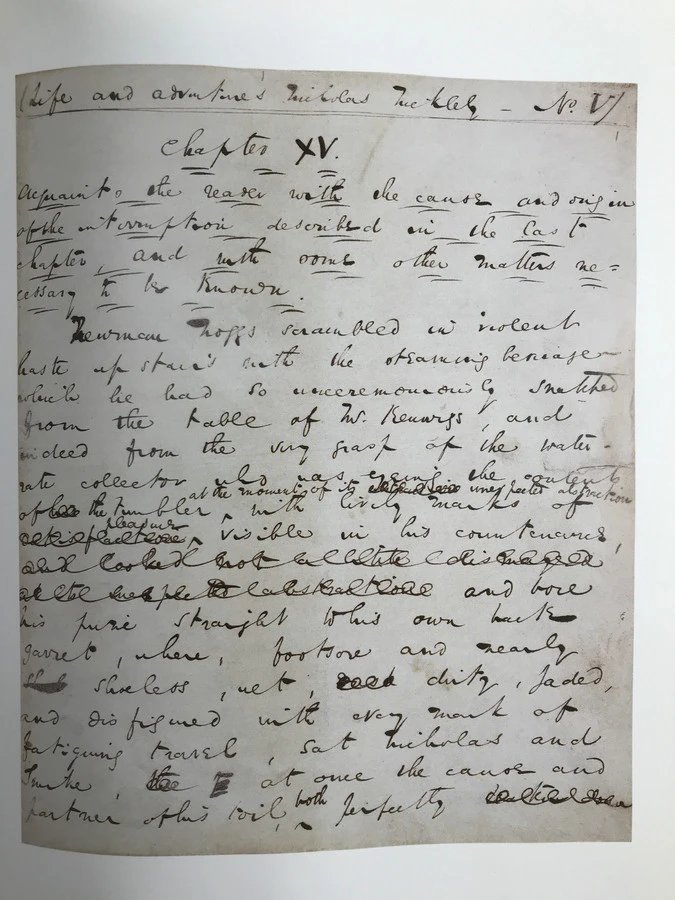 (Life and adventures Nicholas Nickleby — No. V)
Chapter XV.
Acquaints the reader with the cause and origin
of the interruption described in the last
chapter, and with some other matters ne=
cessary to be Known.
Newman Noggs scrambled in violent
haste up stairs with the steaming beverage
which he had so unceremoniously snatched
from the table of Mr. Kenwigs, and
indeed from the very grasp of the water-
rate collector who was eyeing the contents
at the moment of its unexpected abstraction
of the tumbler, with lively marks of
pleasure visible in his countenance,
and looked not a little dismayed
at the unexpected abstraction and bore
his prize straight to his own back
garret, where, footsore and nearly
shoeless, wet, dirty, jaded,
and disfigured with every mark of
fatiguing travel, sat Nicholas and
Smike, at once the cause and
both
partner of his toil, perfectly